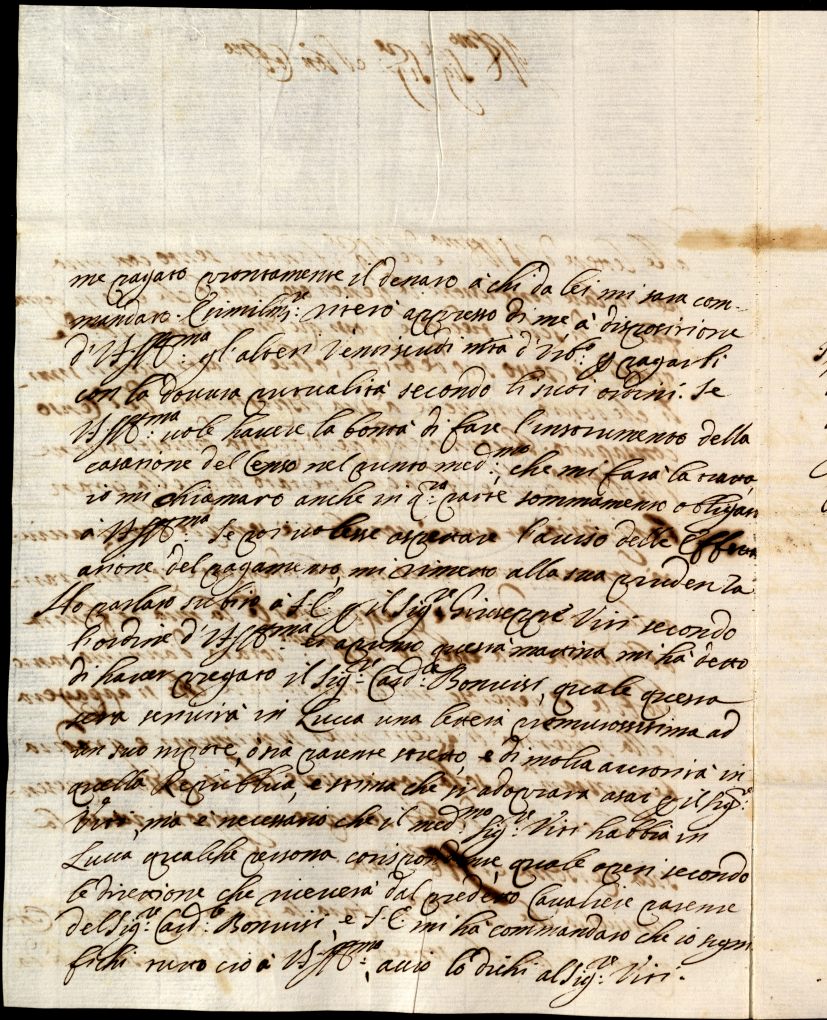 me pagato prontamente il denaro à chi da lei mi sara com-
mandato. E similm.te riterò appresso di me à disposizione
d'VS Ill.ma gl'altri venti scudi m.ta d'Urb.o p pagarli
con la dovuta puntualità secondo li suoi ordini. Se
VS Ill.ma vole havere la bontà di fare l'instrumento della
cassatione del Censo nel punto med.mo che mi farà la tratta,
io mi chiamarò anche in q.ta parte sommamente obligato
à VS Ill.ma Se poi volesse aspettare l'aviso delle effettu
atione del pagamento, mi rimetto alla sua prudenza
Ho parlato subito à S.E. p il Sig.re Giuseppe Viti secondo
l'ordine d'VS Ill.ma et apunto questa mattina mi hà detto
di haver pregato il Sig.re Card.le Bonvisi, quale questa
sera scriverà in Lucca una lettera premurosissima ad
un suo nipote, ò sia parente stretto, e di molta autorità in
quella Republica, e stima che si adoprara asai p il Sig.re
Viti, ma è necessario che il med.mo Sig.re Viti habbia in
Lucca qualche persona corispondente, quale operi secondo
le direttione che riceverà dal predetto Cavaliere parente
del Sig.re Card.le Bonvisi, e S.E. mi hà commandato che io signi
fichi tutto ciò à VS Ill.ma, acciò lo dichi al Sig.re Viti.